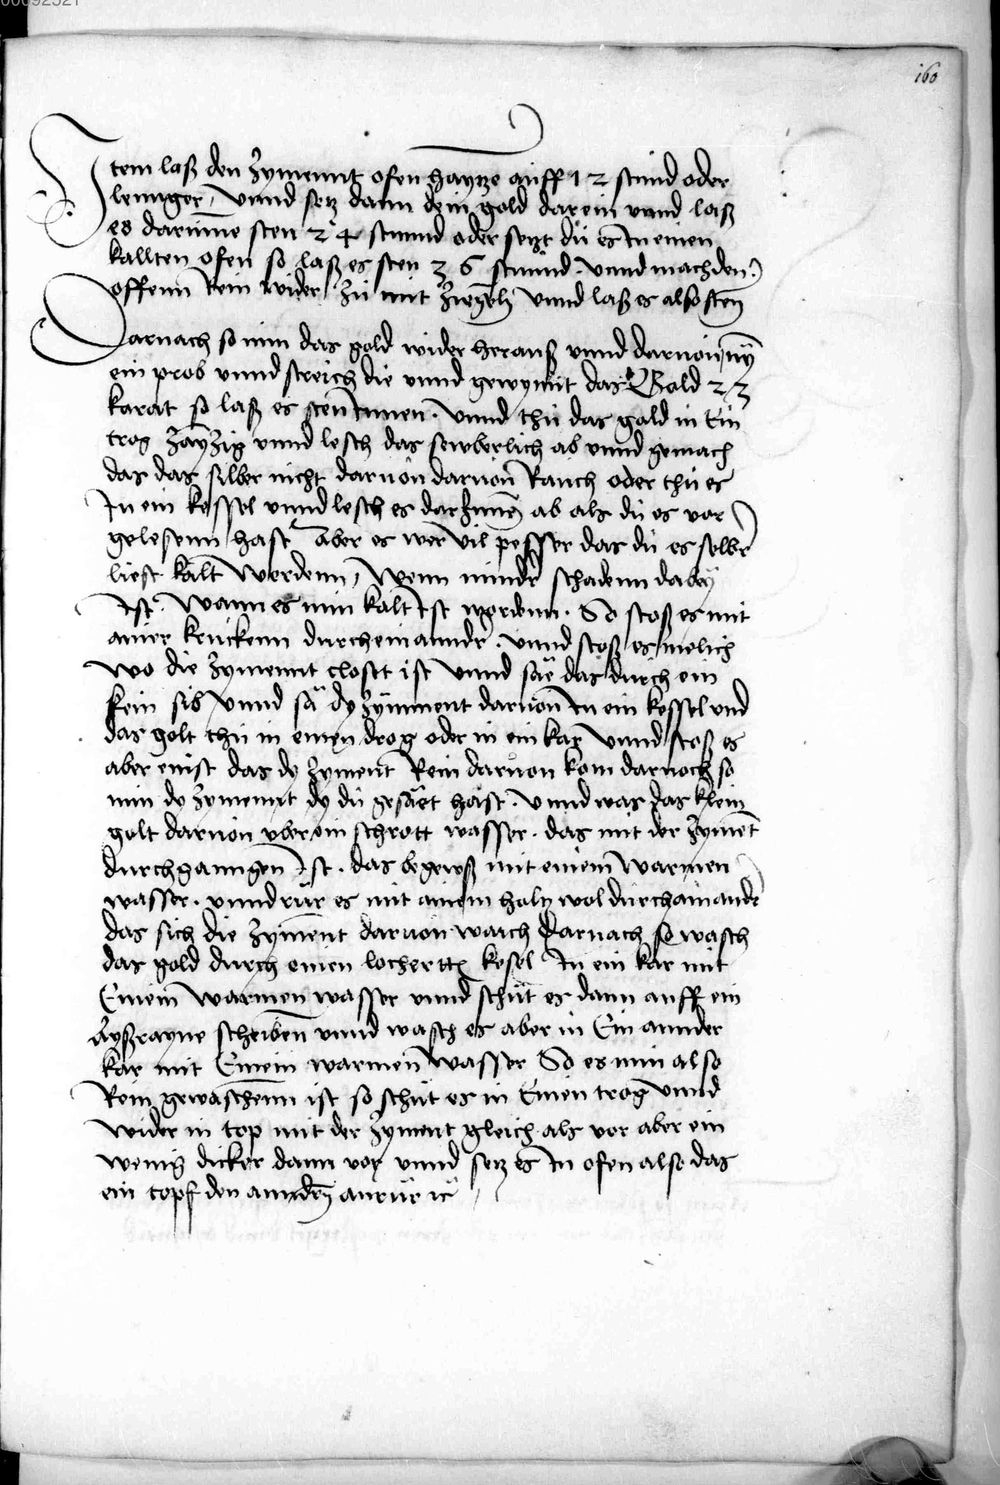 00092321
160
Item laß den Zymennt ofen haytze auff 12 stund oder
lennger, Vnnd setz dann dein gold darein vnnd laß
es darinne sten 24 stunnd oder setzt du es In einen
kallten ofen so laß es sten 36 stund. Vnnd mach den
offenn Rein wider zu mit ziegeln Vnnd laß es also sten
Darnach so nim das gold wider heraus vnnd daruon nÿ
ein prob vnnd streich die vnnd gewynnt das Gold 23
karat so laß es sten Innen. Vnnd thu das gold in Ein
trog vnnd lesch das sewberlich ab vnnd gemach
das das silber nicht daruon daruon Rauch oder thu es
In ein kessel vnnd lesch es darInnen ab als du es vor
gelesenn hast Aber es wer vil pesser das du es selber
liest kalt werdenn, Wenn mindr schadenn dabey
Ist. Wann es nun kalt Ist wordenn. So stoß es mit
ainer kruckenn durch ein anndr. vnnd stoß es
wo die zymennt ist vnnd sae das durch ein
sib Vnnd sä dy zymment daruon In ein kessel vnd
das golt thu in einen drog oder in ein kar Vnnd stoß es
aber einst das dy zyment Rein daruon kom darnoch so
nim dy zymennt dy du gesäet hast. Vnnd was das klein
golt daruon vber ein schrott wasser. das mit der zyment
durchganngen Ist. das begeuß mit einem warmen
wasser. vnnd rür es mit ainem holtz wol durchainander
das sich die zyment daruon waich Darnach so wasch
das gold durch einen kesel In ein kar mit
Einem warmen wasser vnnd schüt es dann auff ein
scheiben vnnd wasch es aber in Ein annder
kar mit Einem warmen wasser So es nun also
Rein gewaschenn ist so schüt es in Einen trog vnnd
wider in top mit der zyment gleich als vor aber ein
wenig dicker dann vor vnnd setz es In ofen also das
ein topf den anndern anrüre